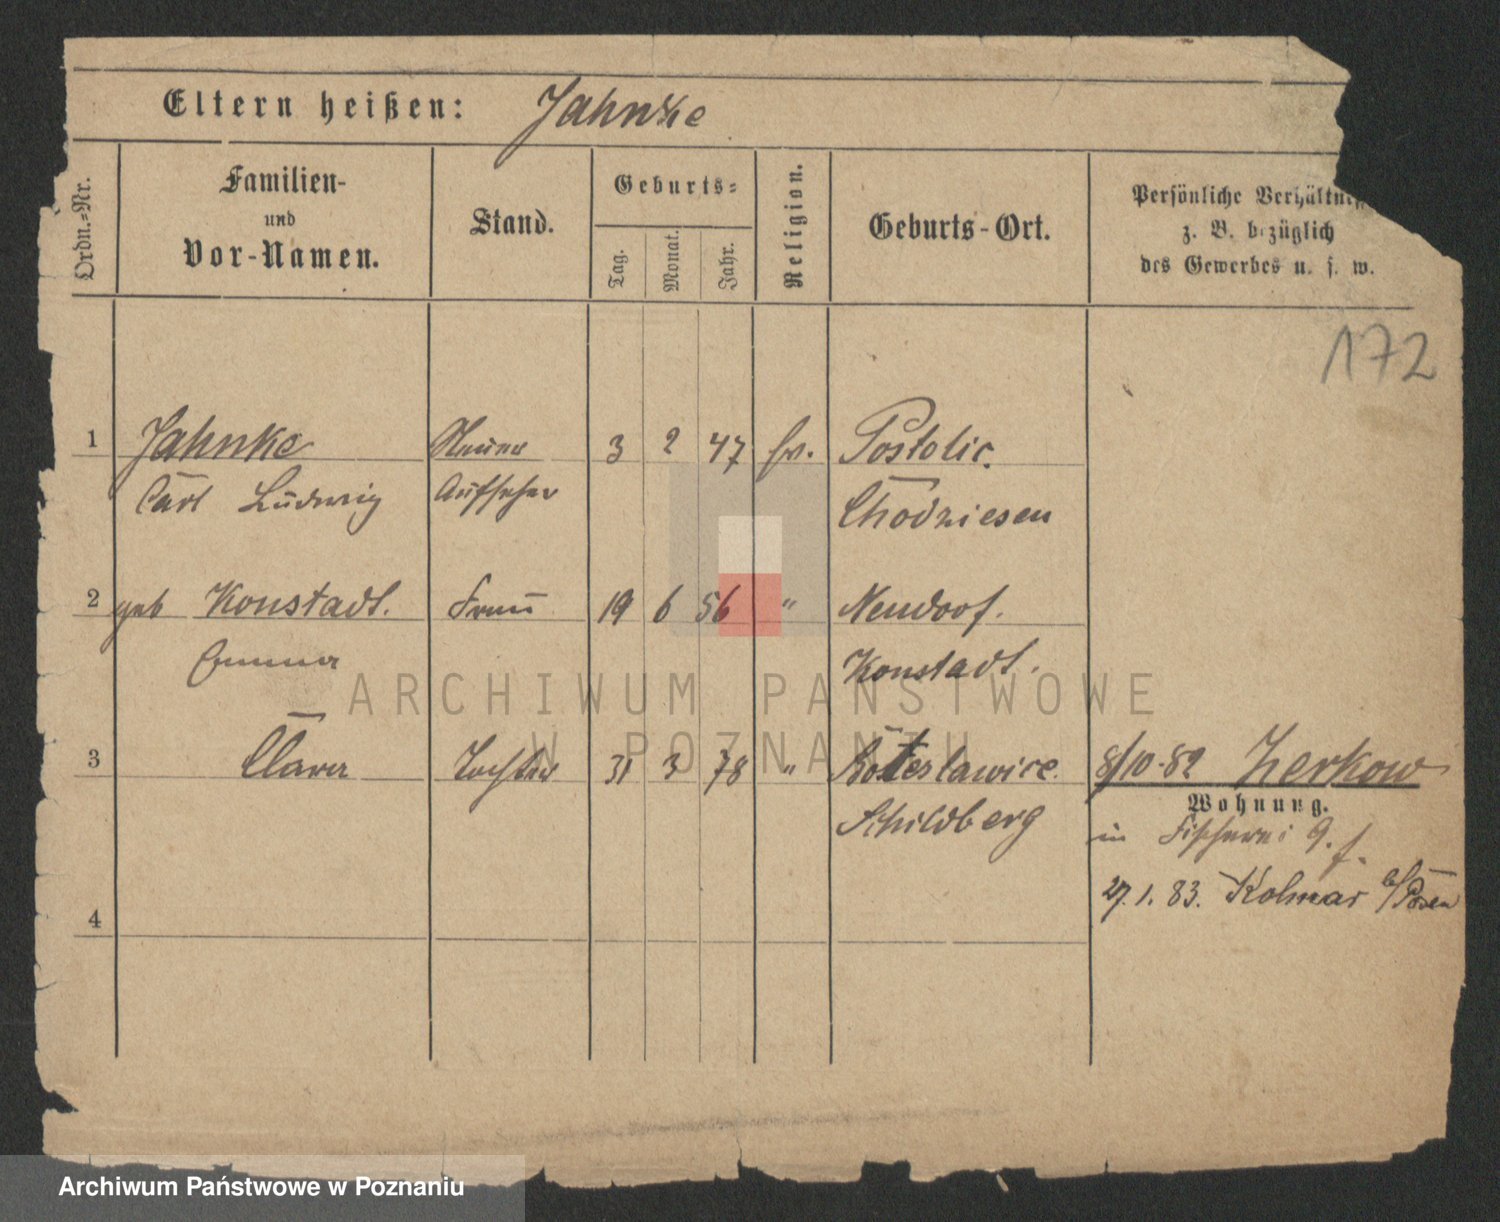 Eltern heißen: Jahnke
Ordn.-Nr.
Familien-
und
Vor-Namen.
Stand.
Geburts-
Tag.
Monat.
Jahr.
Religion.
Geburts-Ort.
Persönliche Verhältnis
z. B. bezüglich
des Gewerbes u. s. w.
172
1 Jahnke Steuer 3 2 47 ev. Postolic.
Carl Ludwig Aufseher Chodziesen
2 geb Konstadt. Frau 19 6 56 " Neudorf.
Emma Konstadt.
3 Clara Tochter 31 3 78 " Schildberg
8/10.82 Zerkow
Wohnung.
in Fischerei 9.
27.1.83. Kolmar b/Posen
4
ARCHIWUM PAŃSTWOWE
W POZNANIU
Archiwum Państwowe w Poznaniu